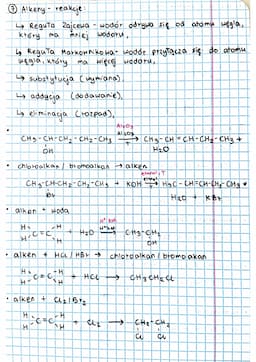 ⑦ Alkeny - reakcje:
↳ Reguła Zajcewa - wodór odrywa się od atomu węgla,
który ma mniej wodoru.
↳ Reguła Markownikowa - wodór przyłącza się do atomu
węgla, który ma więcej wodoru.
↳ substytucja (wymiana).
↳ addycja (dodawanie).
↳ eliminacja (rozpad).
Al₂O₃
CH₃-CH-CH₂-CH₂-CH₃ → CH₃-CH=CH-CH₂-CH₃ +
OH H₂O
• chloroalkan / bromoalkan → alken
etanol, T
CH₃-CH-CH₂-CH₂-CH₃ + KOH → H₃C-CH=CH-CH₂-CH₃ +
Br H₂O + KBr
• alken + woda
H H
C=C + H₂O → CH₃-CH₂
H H OH
• alken + HCl / HBr → chloroalkan / bromoalkan
H H
C=C + HCl → CH₃CH₂Cl
H H
• alken + Cl₂/Br₂
H H
C=C + Cl₂ → CH₂-CH₂
H H Cl Cl